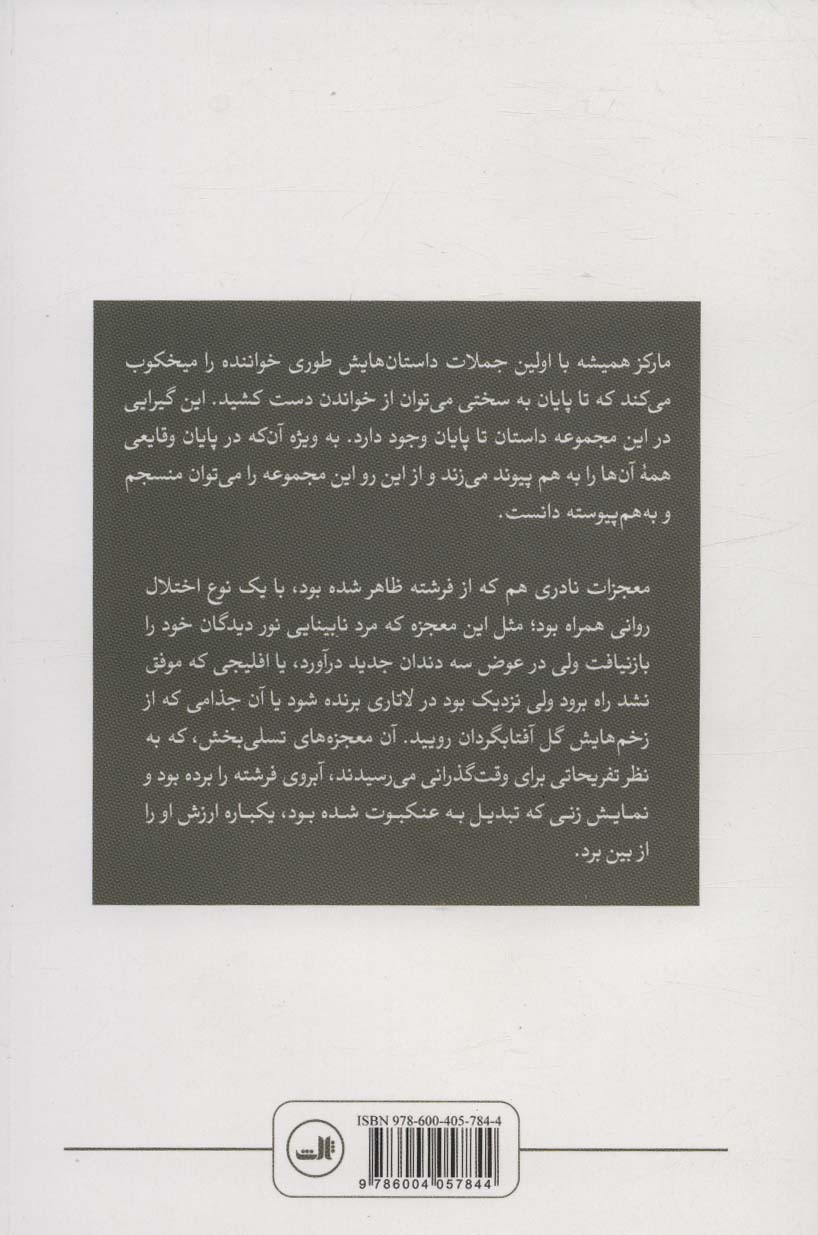 مارکز همیشه با اولین جملات داستان‌هایش طوری خواننده را میخکوب
می‌کند که تا پایان به سختی می‌توان از خواندن دست کشید. این گیرایی
در این مجموعه داستان تا پایان وجود دارد. به ویژه آن‌که در پایان وقایعی
همهٔ آن‌ها را به هم پیوند می‌زند و از این رو این مجموعه را می‌توان منسجم
و به‌هم‌پیوسته دانست.
معجزات نادری هم که از فرشته ظاهر شده بود، با یک نوع اختلال
روانی همراه بود؛ مثل این معجزه که مرد نابینایی نور دیدگان خود را
بازنیافت ولی در عوض سه دندان جدید درآورد، یا افلیجی که موفق
نشد راه برود ولی نزدیک بود در لاتاری برنده شود یا آن جذامی که از
زخم‌هایش گل آفتابگردان رویید. آن معجزه‌های تسلی‌بخش، که به
نظر تفریحاتی برای وقت‌گذرانی می‌رسیدند، آبروی فرشته را برده بود و
نمایش زنی که تبدیل به عنکبوت شده بود، یکباره ارزش او را
از بین برد.
ISBN 978-600-405-784-4
ثالث
9 786004 057844